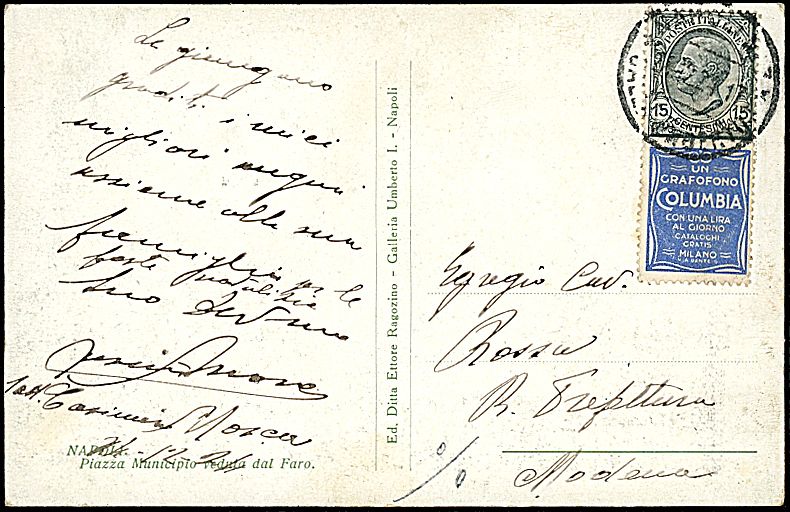 Le giungano
graditi i miei
migliori auguri
assieme alla sua
famiglia per le
feste natalizie
Suo
Casimiro Mosca
-12-24
NAPOLI.
Piazza Municipio veduta dal Faro.
Ed. Ditta Ettore Ragozino - Galleria Umberto I. - Napoli
POSTE ITALIANE
15 15
CENTESIMI
UN
GRAFOFONO
COLUMBIA
CON UNA LIRA
AL GIORNO
CATALOGHI
GRATIS
MILANO
VIA DANTE 9
Egregio Cav.
Rossi
R. Prefettura
Modena